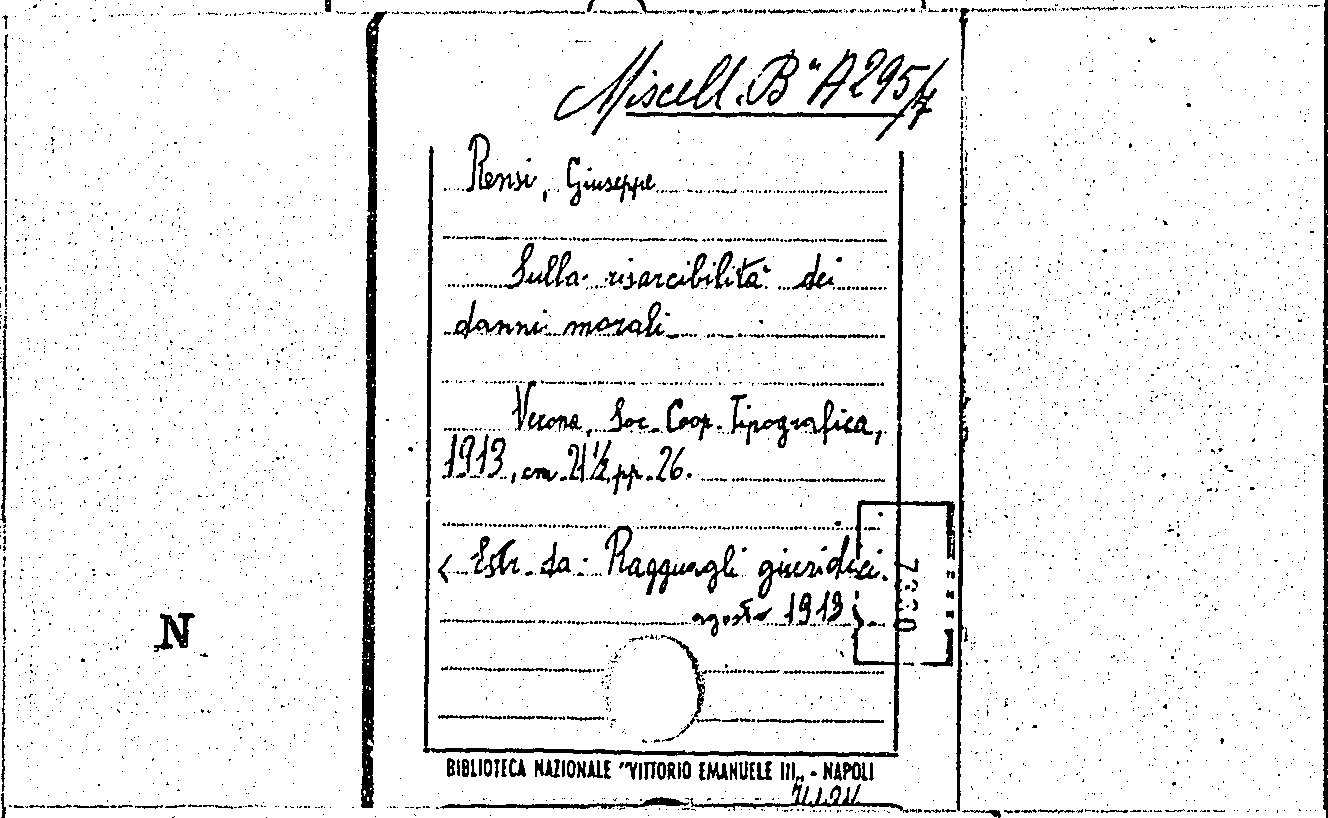 Miscell. Bª A 295/7
Rensi, Giuseppe
Sulla risarcibilità dei
danni morali
Verona, Soc. Coop. Tipografica,
1913, cm. 21 ½, pp. 26.
< Estr. da: Ragguagli giuridici.
agosto 1913
N
BIBLIOTECA NAZIONALE "VITTORIO EMANUELE III„ - NAPOLI